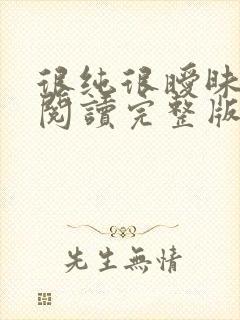 很純很曖昧
閱讀完整版
先生無情